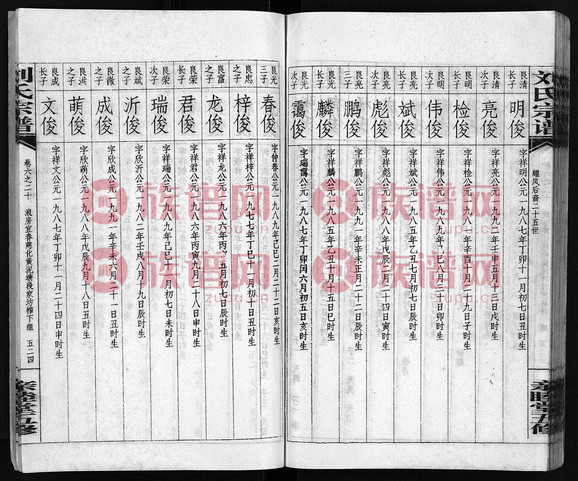 刘氏宗谱
燿凤后裔二十五世
亲睦堂五修
良清长子
明俊
字祥明公元一九八七年丁卯十一月初七日丑时生
良清次子
亮俊
字祥亮公元一九九二年壬申五月十三日戌时生
良明长子
检俊
字祥检公元一九八一年辛酉十月二十九日子时生
良明次子
伟俊
字祥伟公元一九八九年巳八月十一日辰时生
良亮长子
斌俊
字祥斌公元一九年七月初七日辰时生
良亮次子
彪俊
字祥彪公元一九八八年戊辰二月二十四日寅时生
良亮三子
鹏俊
字祥鹏公元一九九一年辛未正月二十一日丑时生
良光长子
麟俊
字祥麟公元一九八五年乙丑十月十五日巳时生
良光次子
霭俊
字瑞霭公元一九八七年丁卯闰六月初五日丑时生
良光三子
春俊
字仲春公元一九八九年己巳二月二十二日亥时生
良忠之子
梓俊
字祥梓公元一九七七年丁巳十一月初十日丑时生
良富之子
龙俊
字祥龙公元一九八五年五月初七日辰时生
良荣长子
君俊
字祥君公元一九八六年丙寅九月二十八日申时生
良荣次子
瑞俊
字祥瑞公元一九八九年己巳十月初七日未时生
良斌之子
沂俊
字欣沂公元一九八二年壬戌八月十九日辰时生
良微之子
成俊
字欣成公元一九九一年辛未六月二十一日丑时生
良洪之子
萌俊
字欣萌公元一九八八年戊辰九月十八日丑时生
良成长子
文俊
字祥文公元一九八七年丁卯十一月二十四日申时生
刘氏宗谱
卷六之二十
浪房宜春湾化黄泥塘段家坊樟下组
五二四
亲睦堂五修
族谱网
zupu.cn
族谱网
zupu.cn